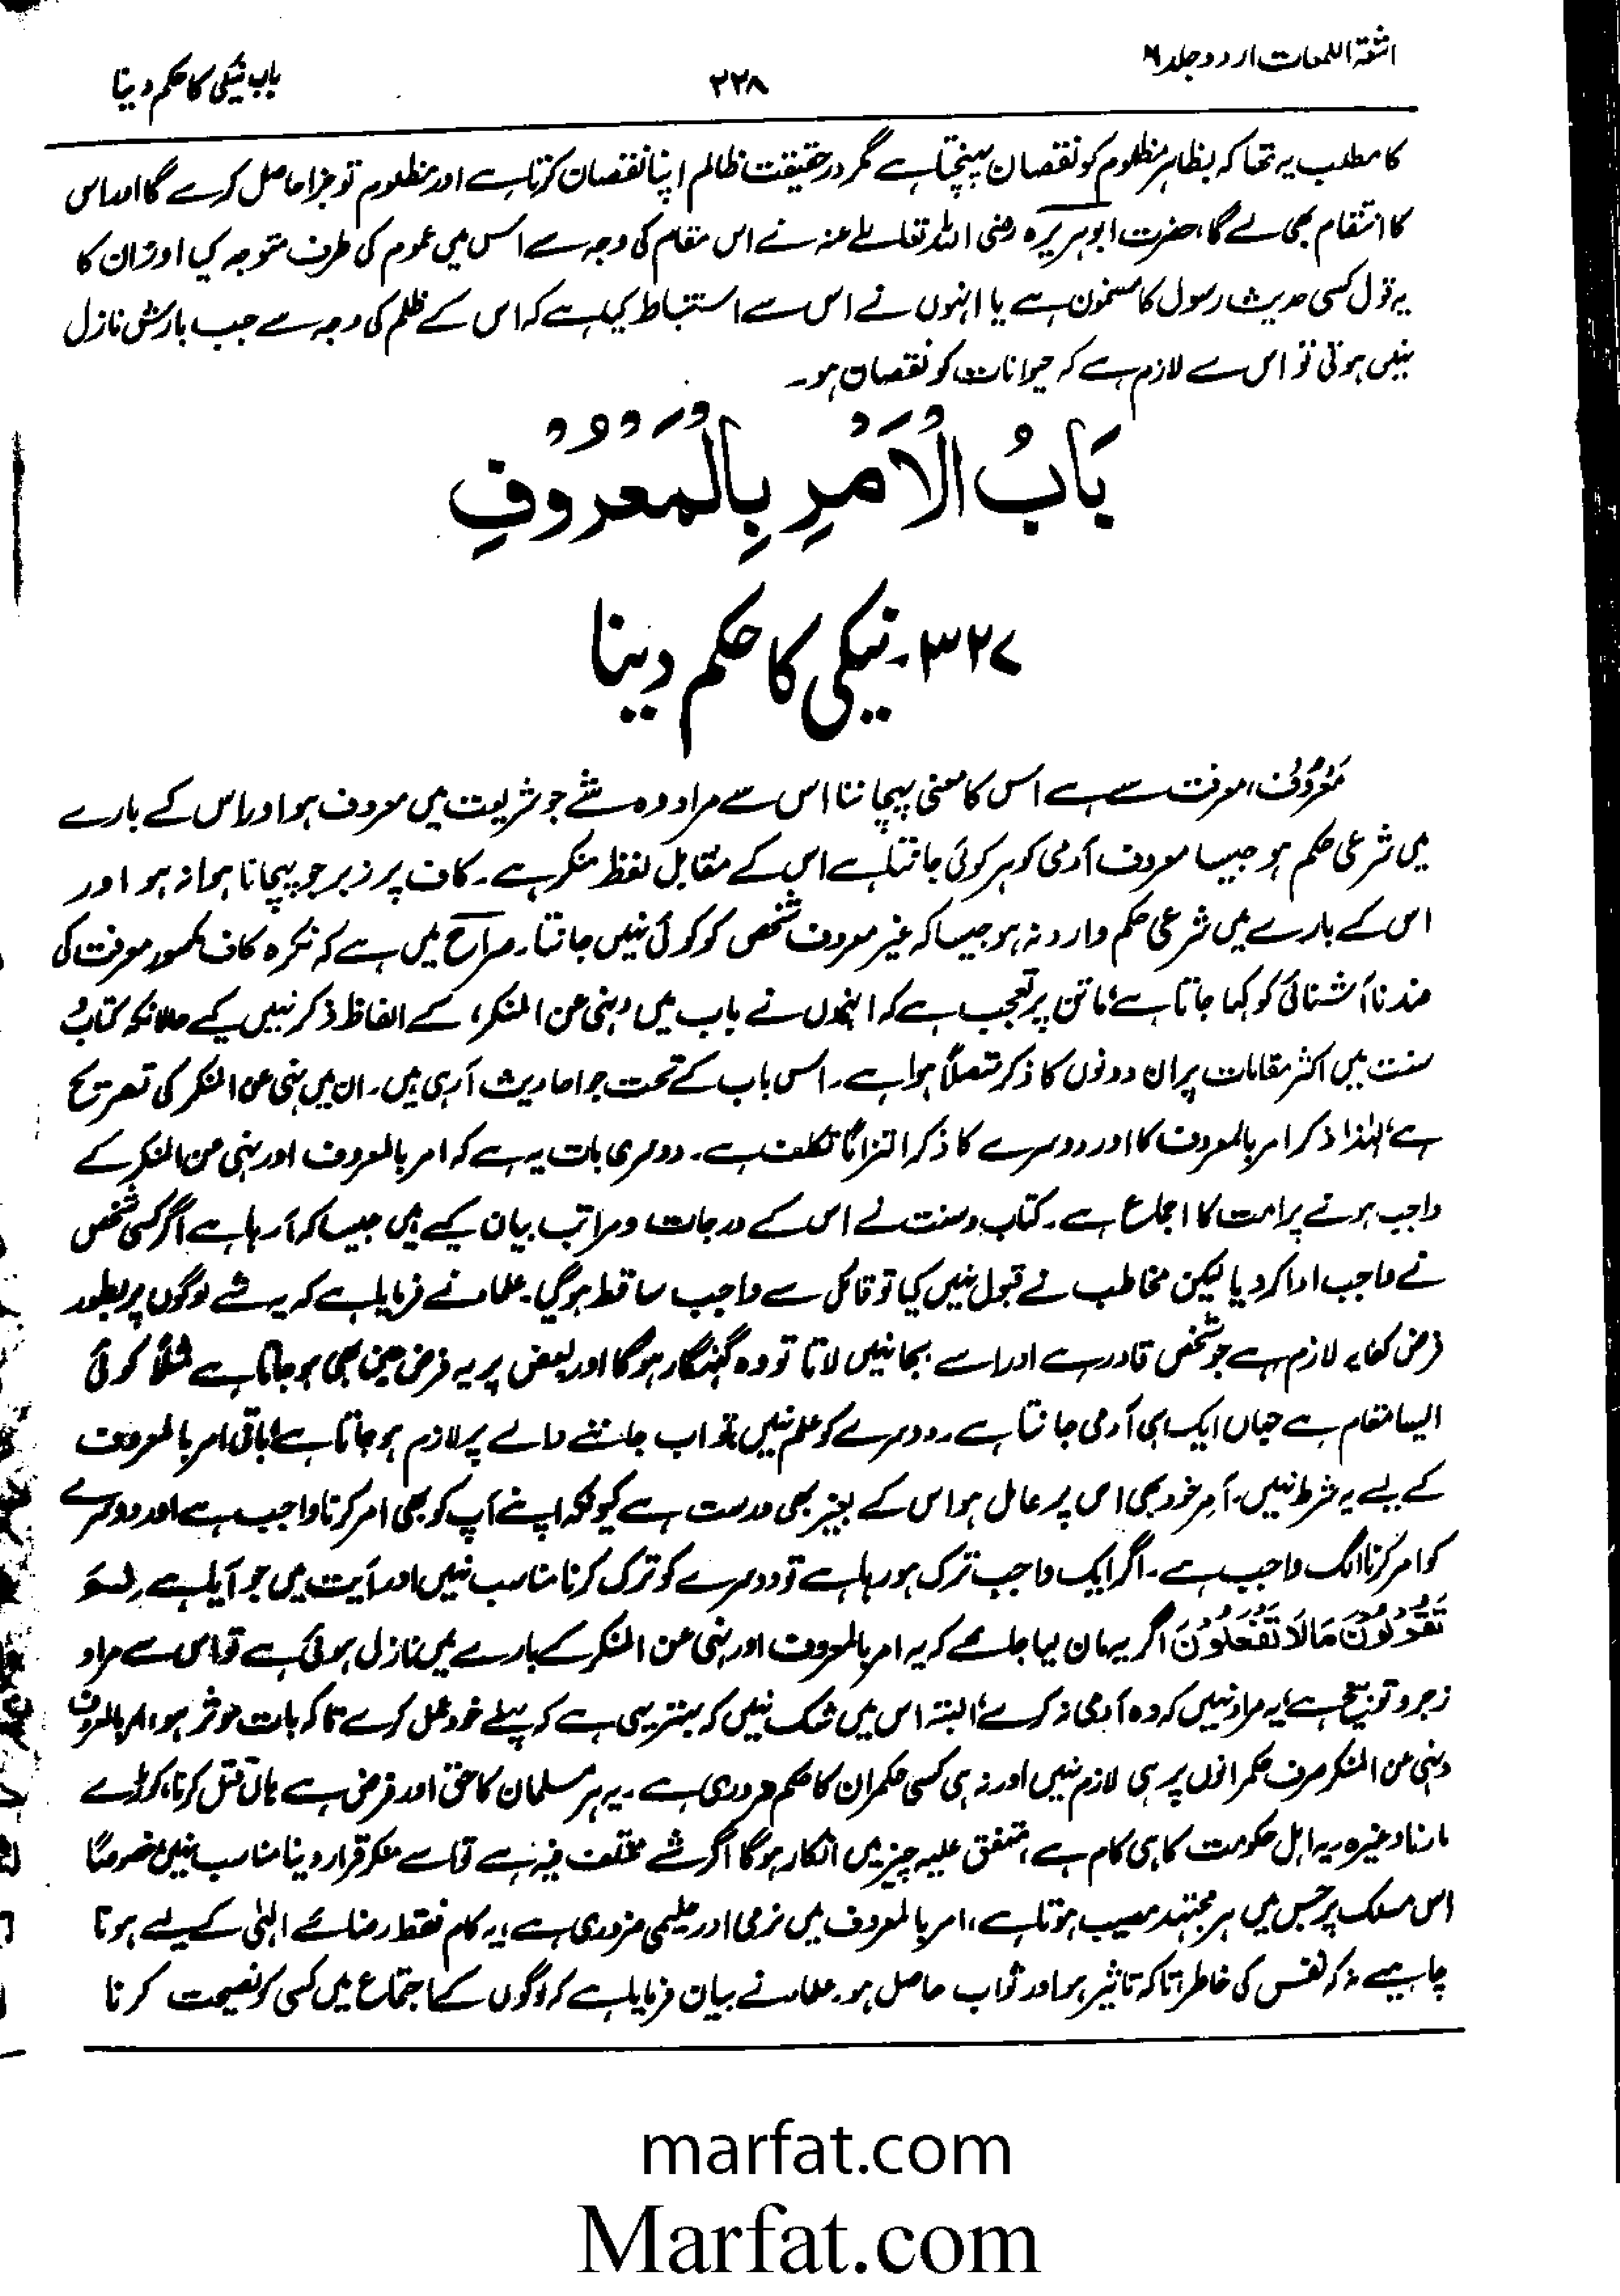 اشعۃ اللمعات اردو جلد ۶
۲۲۸
باب نیکی کا حکم دینا
کا مطلب یہ تھا کہ بظاہر مظلوم کو نقصان پہنچتا ہے مگر درحقیقت ظالم اپنا نقصان کرتا ہے اور مظلوم تو جزا حاصل کرے گا اور اس
کا انتقام بھی لے گا، حضرت ابوہریرہ رضی اللہ تعالیٰ عنہ نے اس مقام کی وجہ سے اس میں عموم کی طرف متوجہ کیا اور ان کا
یہ قول کسی حدیث رسول کا مضمون ہے یا انہوں نے اس سے استنباط کیا ہے کہ اس کے ظلم کی وجہ سے جب بارش نازل
نہیں ہوتی تو اس سے لازم ہے کہ حیوانات کو نقصان ہو۔
بَابُ الْاَمْرِ بِالْمَعْرُوْفِ
۳۲۷۔ نیکی کا حکم دینا
مَعْرُوْف، معرفت سے ہے اس کا معنی پہچاننا اس سے مراد وہ شے جو شریعت میں معروف ہو اور اس کے بارے
میں شرعی حکم ہو جیسا معروف آدمی کو ہر کوئی جانتا ہے اس کے مقابل لفظ منکر ہے۔ کاف پر زبر جو پہچانا ہوا نہ ہو اور
اس کے بارے میں شرعی حکم وارد نہ ہو جیسا کہ غیر معروف شخص کو کوئی نہیں جانتا۔ صراح میں ہے کہ نکرہ کاف مکسور معرفت کی
ضد ناآشنائی کو کہا جاتا ہے، ماتن پر تعجب ہے کہ انہوں نے باب میں (نہی عن المنکر) کے الفاظ ذکر نہیں کیے حالانکہ کتاب و
سنت میں اکثر مقامات پر ان دونوں کا ذکر متصلاً ہوا ہے۔ اس باب کے تحت جو احادیث آ رہی ہیں۔ ان میں نہی عن المنکر کی تصریح
ہے، لہٰذا ذکر امر بالمعروف کا اور دوسرے کا ذکر التزاماً تکلف ہے۔ دوسری بات یہ ہے کہ امر بالمعروف اور نہی عن المنکر کے
واجب ہونے پر امت کا اجماع ہے۔ کتاب و سنت نے اس کے درجات و مراتب بیان کیے ہیں جیسا کہ آ رہا ہے اگر کسی شخص
نے واجب ادا کر دیا لیکن مخاطب نے قبول نہیں کیا تو قائل سے واجب ساقط ہو گیا۔ علماء نے فرمایا ہے کہ یہ شے لوگوں پر بطور
فرض کفایہ لازم ہے جو شخص قادر ہے اور اسے بجا نہیں لاتا تو وہ گنہگار ہو گا اور بعض پر یہ فرض عین بھی ہو جاتا ہے مثلاً کوئی
ایسا مقام ہے جہاں ایک ہی آدمی جانتا ہے۔ دوسرے کو علم نہیں تو اب جاننے والے پر لازم ہو جاتا ہے، باقی امر بالمعروف
کے لیے یہ شرط نہیں۔ آمر خود بھی اس پر عامل ہو اس کے بغیر بھی درست ہے کیونکہ اپنے آپ کو بھی امر کرنا واجب ہے اور دوسرے
کو امر کرنا الگ واجب ہے۔ اگر ایک واجب ترک ہو رہا ہے تو دوسرے کو ترک کرنا مناسب نہیں اور آیت میں جو آیا ہے (لِمَ
تَقُوْلُوْنَ مَا لَا تَفْعَلُوْنَ اگر یہ مان لیا جائے کہ یہ امر بالمعروف اور نہی عن المنکر کے بارے میں نازل ہوئی ہے تو اس سے مراد
زجر و توبیخ ہے، یہ مراد نہیں کہ وہ آدمی نہ کرے، البتہ اس میں شک نہیں کہ بہتر یہی ہے کہ پہلے خود عمل کرے تاکہ بات موثر ہو، امر بالمعروف
و نہی عن المنکر صرف حکمرانوں پر ہی لازم نہیں اور نہ ہی کسی حکمران کا حکم ضروری ہے۔ یہ ہر مسلمان کا حق اور فرض ہے ہاں قتل کرنا، کوڑے
مارنا وغیرہ یہ اہل حکومت کا ہی کام ہے، متفق علیہ چیز میں انکار ہو گا اگر شے مختلف فیہ ہے تو اسے منکر قرار دینا مناسب نہیں خصوصاً
اس مسلک پر جس میں ہر مجتہد مصیب ہوتا ہے، امر بالمعروف میں نرمی اور حلیمی ضروری ہے، یہ کام فقط رضائے الٰہی کے لیے ہونا
چاہیے نہ کہ نفس کی خاطر تاکہ تاثیر ہو اور ثواب حاصل ہو۔ علماء نے بیان فرمایا ہے کہ لوگوں کے اجتماع میں کسی کو نصیحت کرنا
marfat.com
Marfat.com